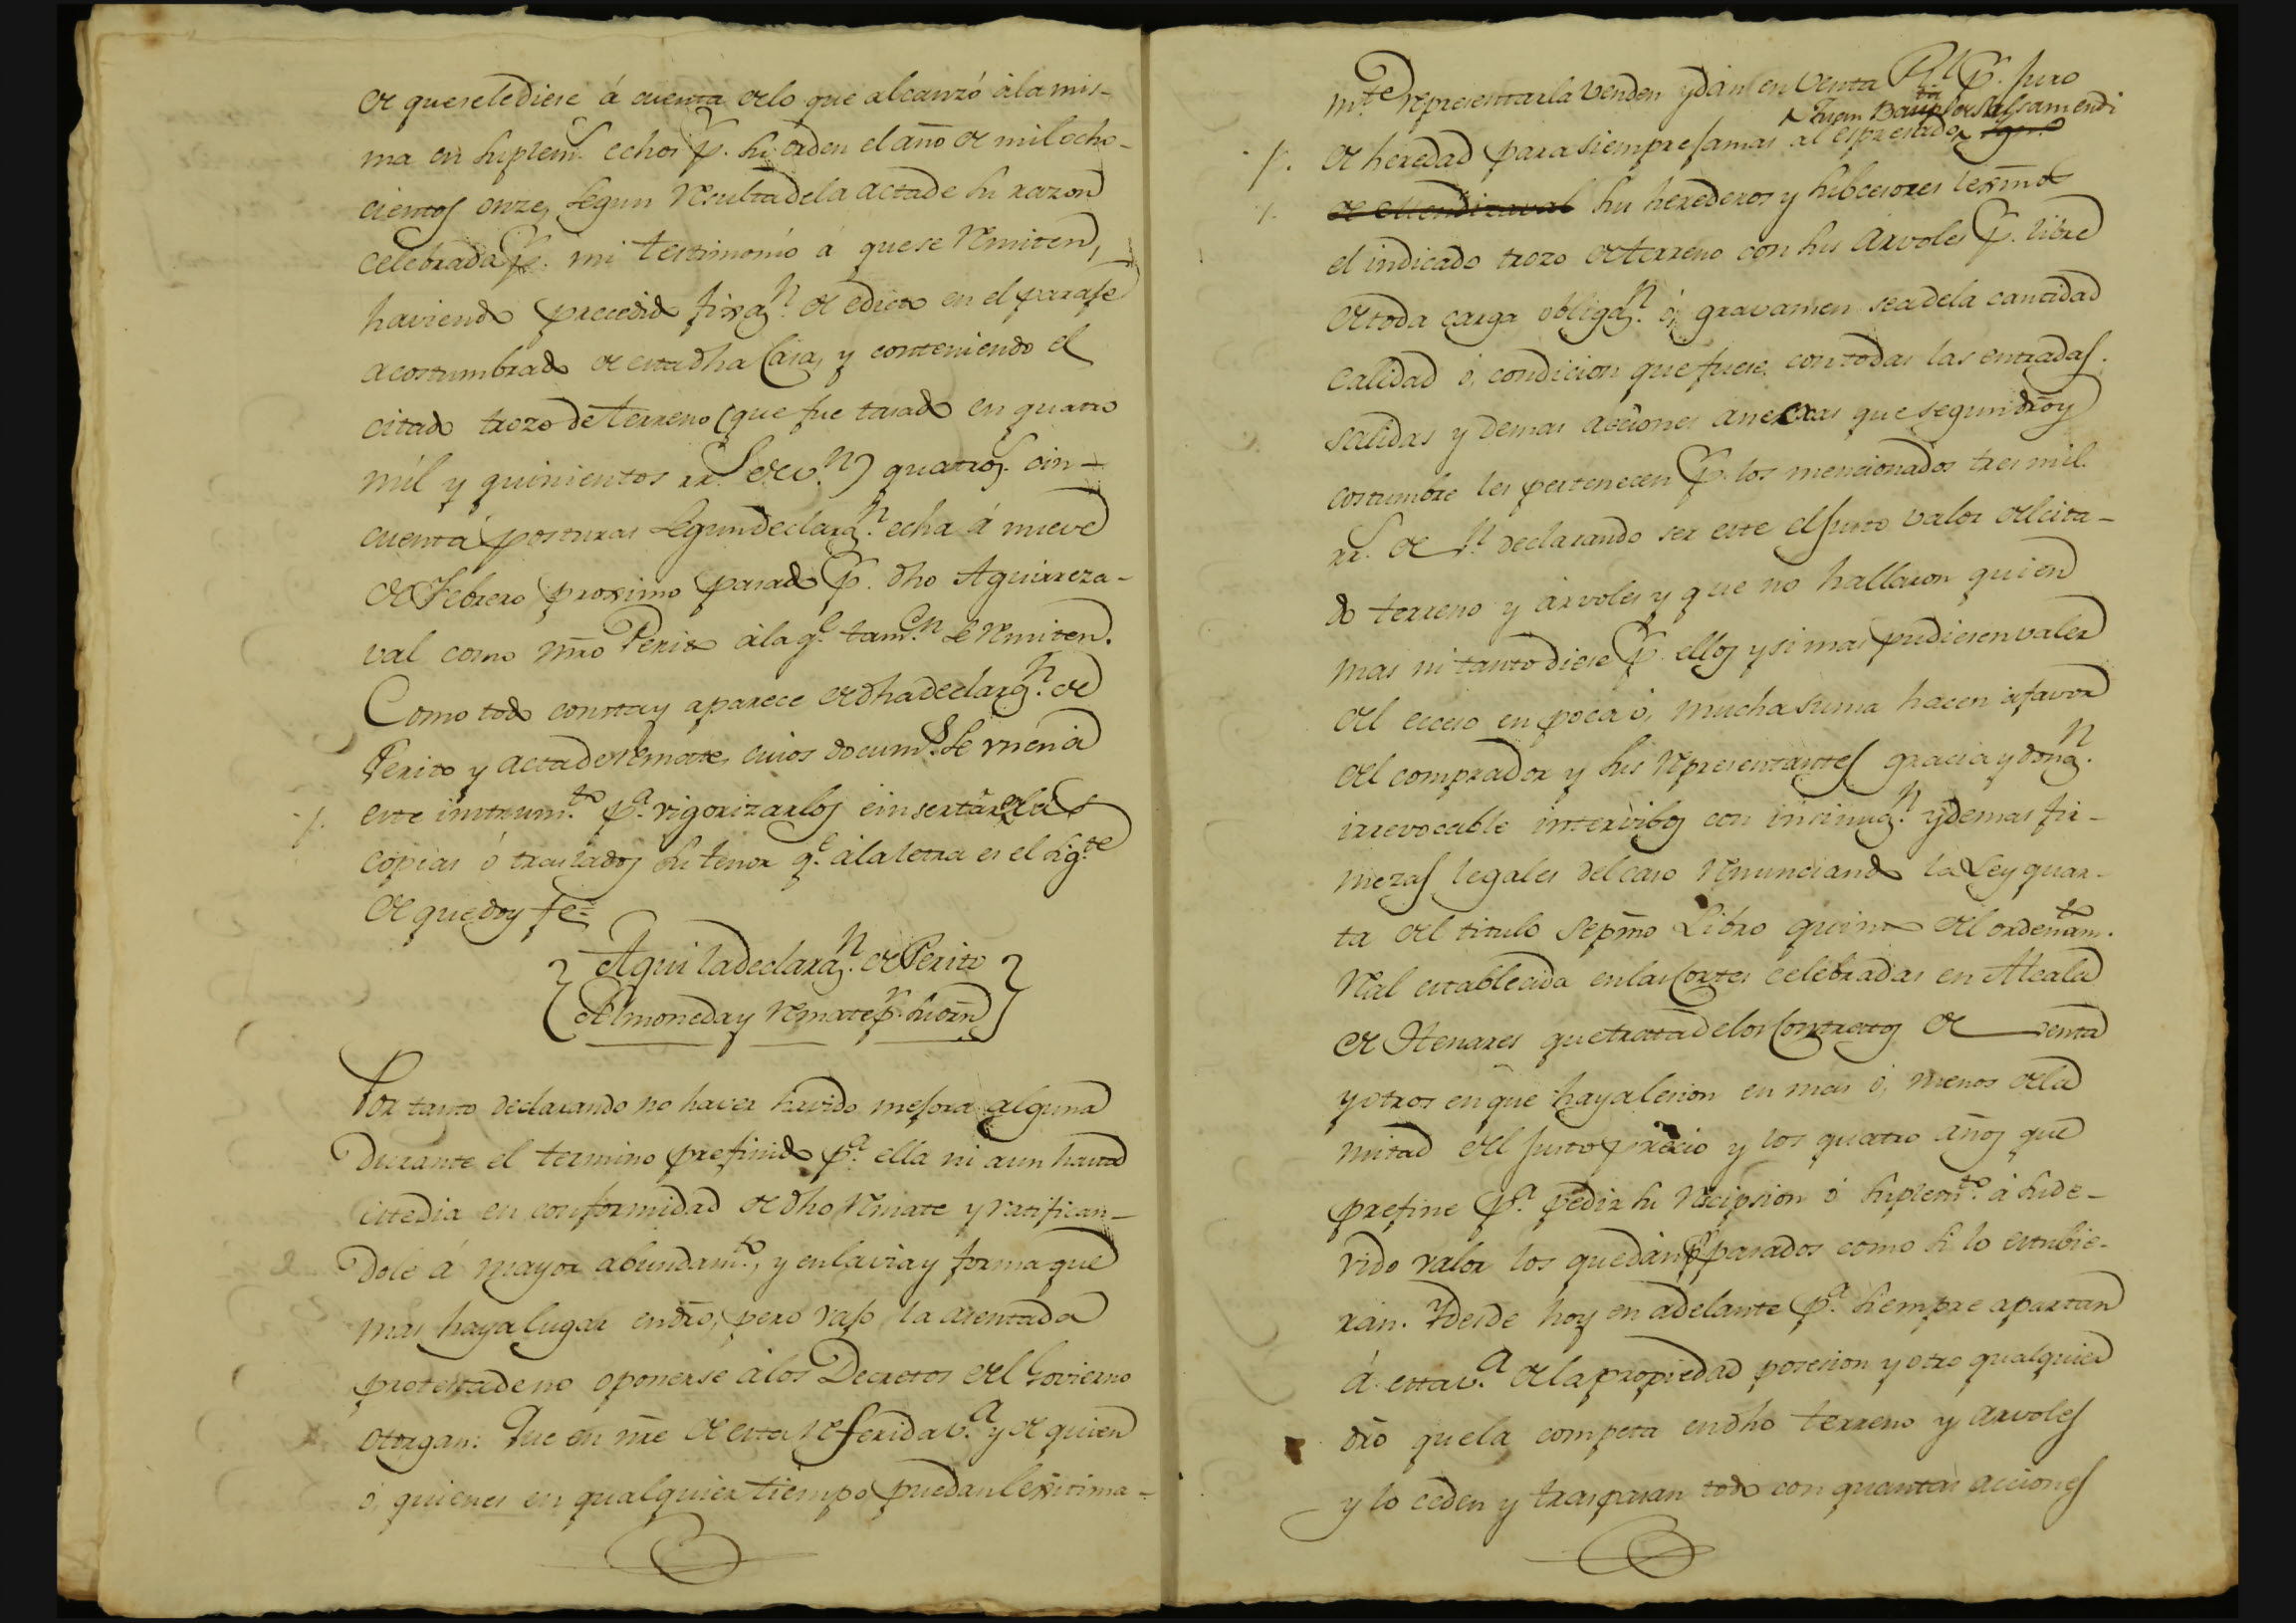 de que se le diese á cuenta de lo que alcanzó á la mis-
ma en suplem.s echos p.r su orden el año de mil ocho-
cientos onze, segun resulta de la acta de su razon
celebrada p.r mi testimonio á que se remiten,
haviendo precedido fixaz.n de edicto en el paraje
acostumbrado de esta dha Casa, y conteniendo el
citado trozo de terreno (que fue tasado en quatro
mil y quinientos rr.s de v.n) quatroz. cin-
cuenta posturas segun declaraz.n echa á nueve
de Febrero proximo pasado p.r dho Aguirreza-
val como mro Perito á la q.e tam.en se remiten.
Como todo consta y aparece de dha declaraz.n de
Perito y acta de remate, cuios docum.s se unen á
este instrum.to p.a vigorizarlos é insertar en las
copias ó traslados su tenor q.e á la letra es el sig.te
de que doy fe=
Aqui la declaraz.n de Perito
Almoneda y remate p.r su orñ
Por tanto declarando no haver havido mejora alguna
durante el termino prefinido p.a ella ni aun hasta
este dia en conformidad de dho remate y ratifican-
dole á mayor abundam.to, y en la via y forma que
mas haya lugar en dro, pero vajo la asentada
protesta de no oponerse á los Decretos del Govierno
otorgan: Que en nre de esta referida v.a y de quien
ó, quienes en qualquier tiempo puedan lexitima-
m.te representarla venden y dan en venta R.l p.r juro
Juan Bau.ta de Salsamendi
de heredad para siempre jamas al espresado
de Mendizaval su herederos y subcesores lexmos
el indicado trozo de terreno con sus arvoles p.r libre
de toda carga obligaz.n ó, gravamen sea de la cantidad
calidad ó, condicion que fuese, con todas las entradas,
salidas y demas acciones anexas que segun dro y
costumbre les pertenecen p.r los mencionados tres mil
rr.s de v.n declarando ser este el justo valor del cita-
do terreno y arvoles y que no hallaron quien
mas ni tanto diese p.r ellos y si mas pudiesen valer
del exceso en poca ó, mucha suma hacen á favor
del comprador y sus representantes gracia y donaz.n
irrevocable intervibos con insinuaz.n y demas fir-
mezas legales del caso renunciando la Ley quar-
ta del titulo sepmo Libro quinto del ordenam.to
Real establecida en las Cortes celebradas en Alcala
de Henares que trata de los Contratos de venta
y otros en que haya lesion en mas ó, menos de la
mitad del justo precio y los quatro años que
prefine p.a pedir su recipsion ó suplem.to á su de-
vido valor los que dan p.r pasados como si lo estubie-
ran. Y desde hoy en adelante p.a siempre apartan
á esta v.a de la propiedad posesion y otro qualquier
dro que la competa en dho terreno y arvoles
y lo ceden y traspasan todo con quantas acciones